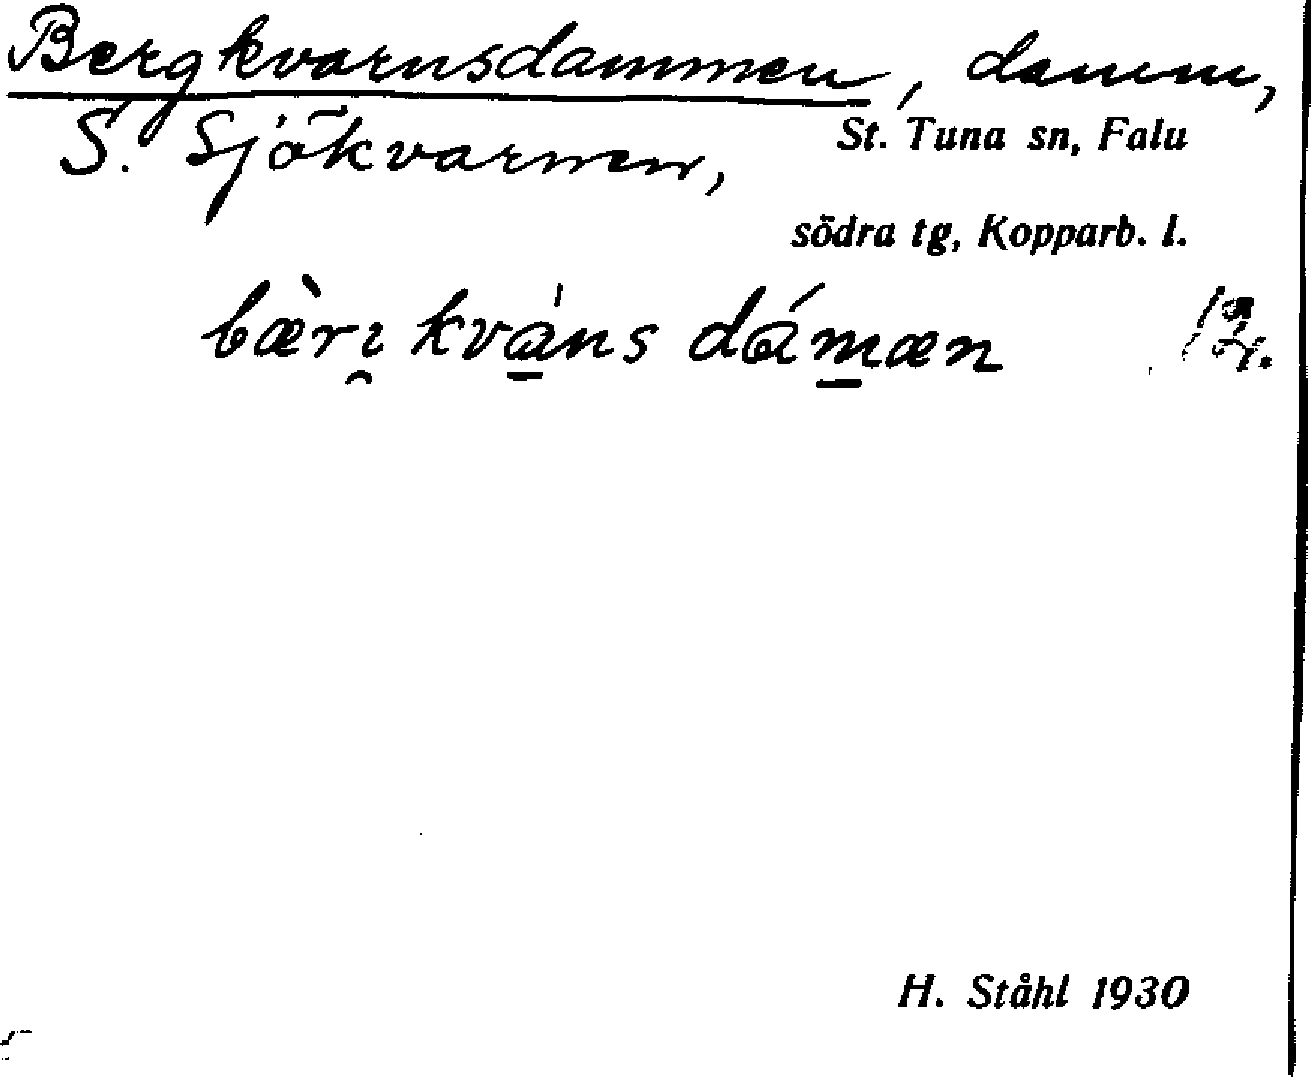 Bergkvarnsdammen, damm,
S. Sjökvarnen,
St. Tuna sn, Falu
södra tg, Kopparb. l.
bær̀ı̯ kvá̱ns dám̱æn
H. Ståhl 1930